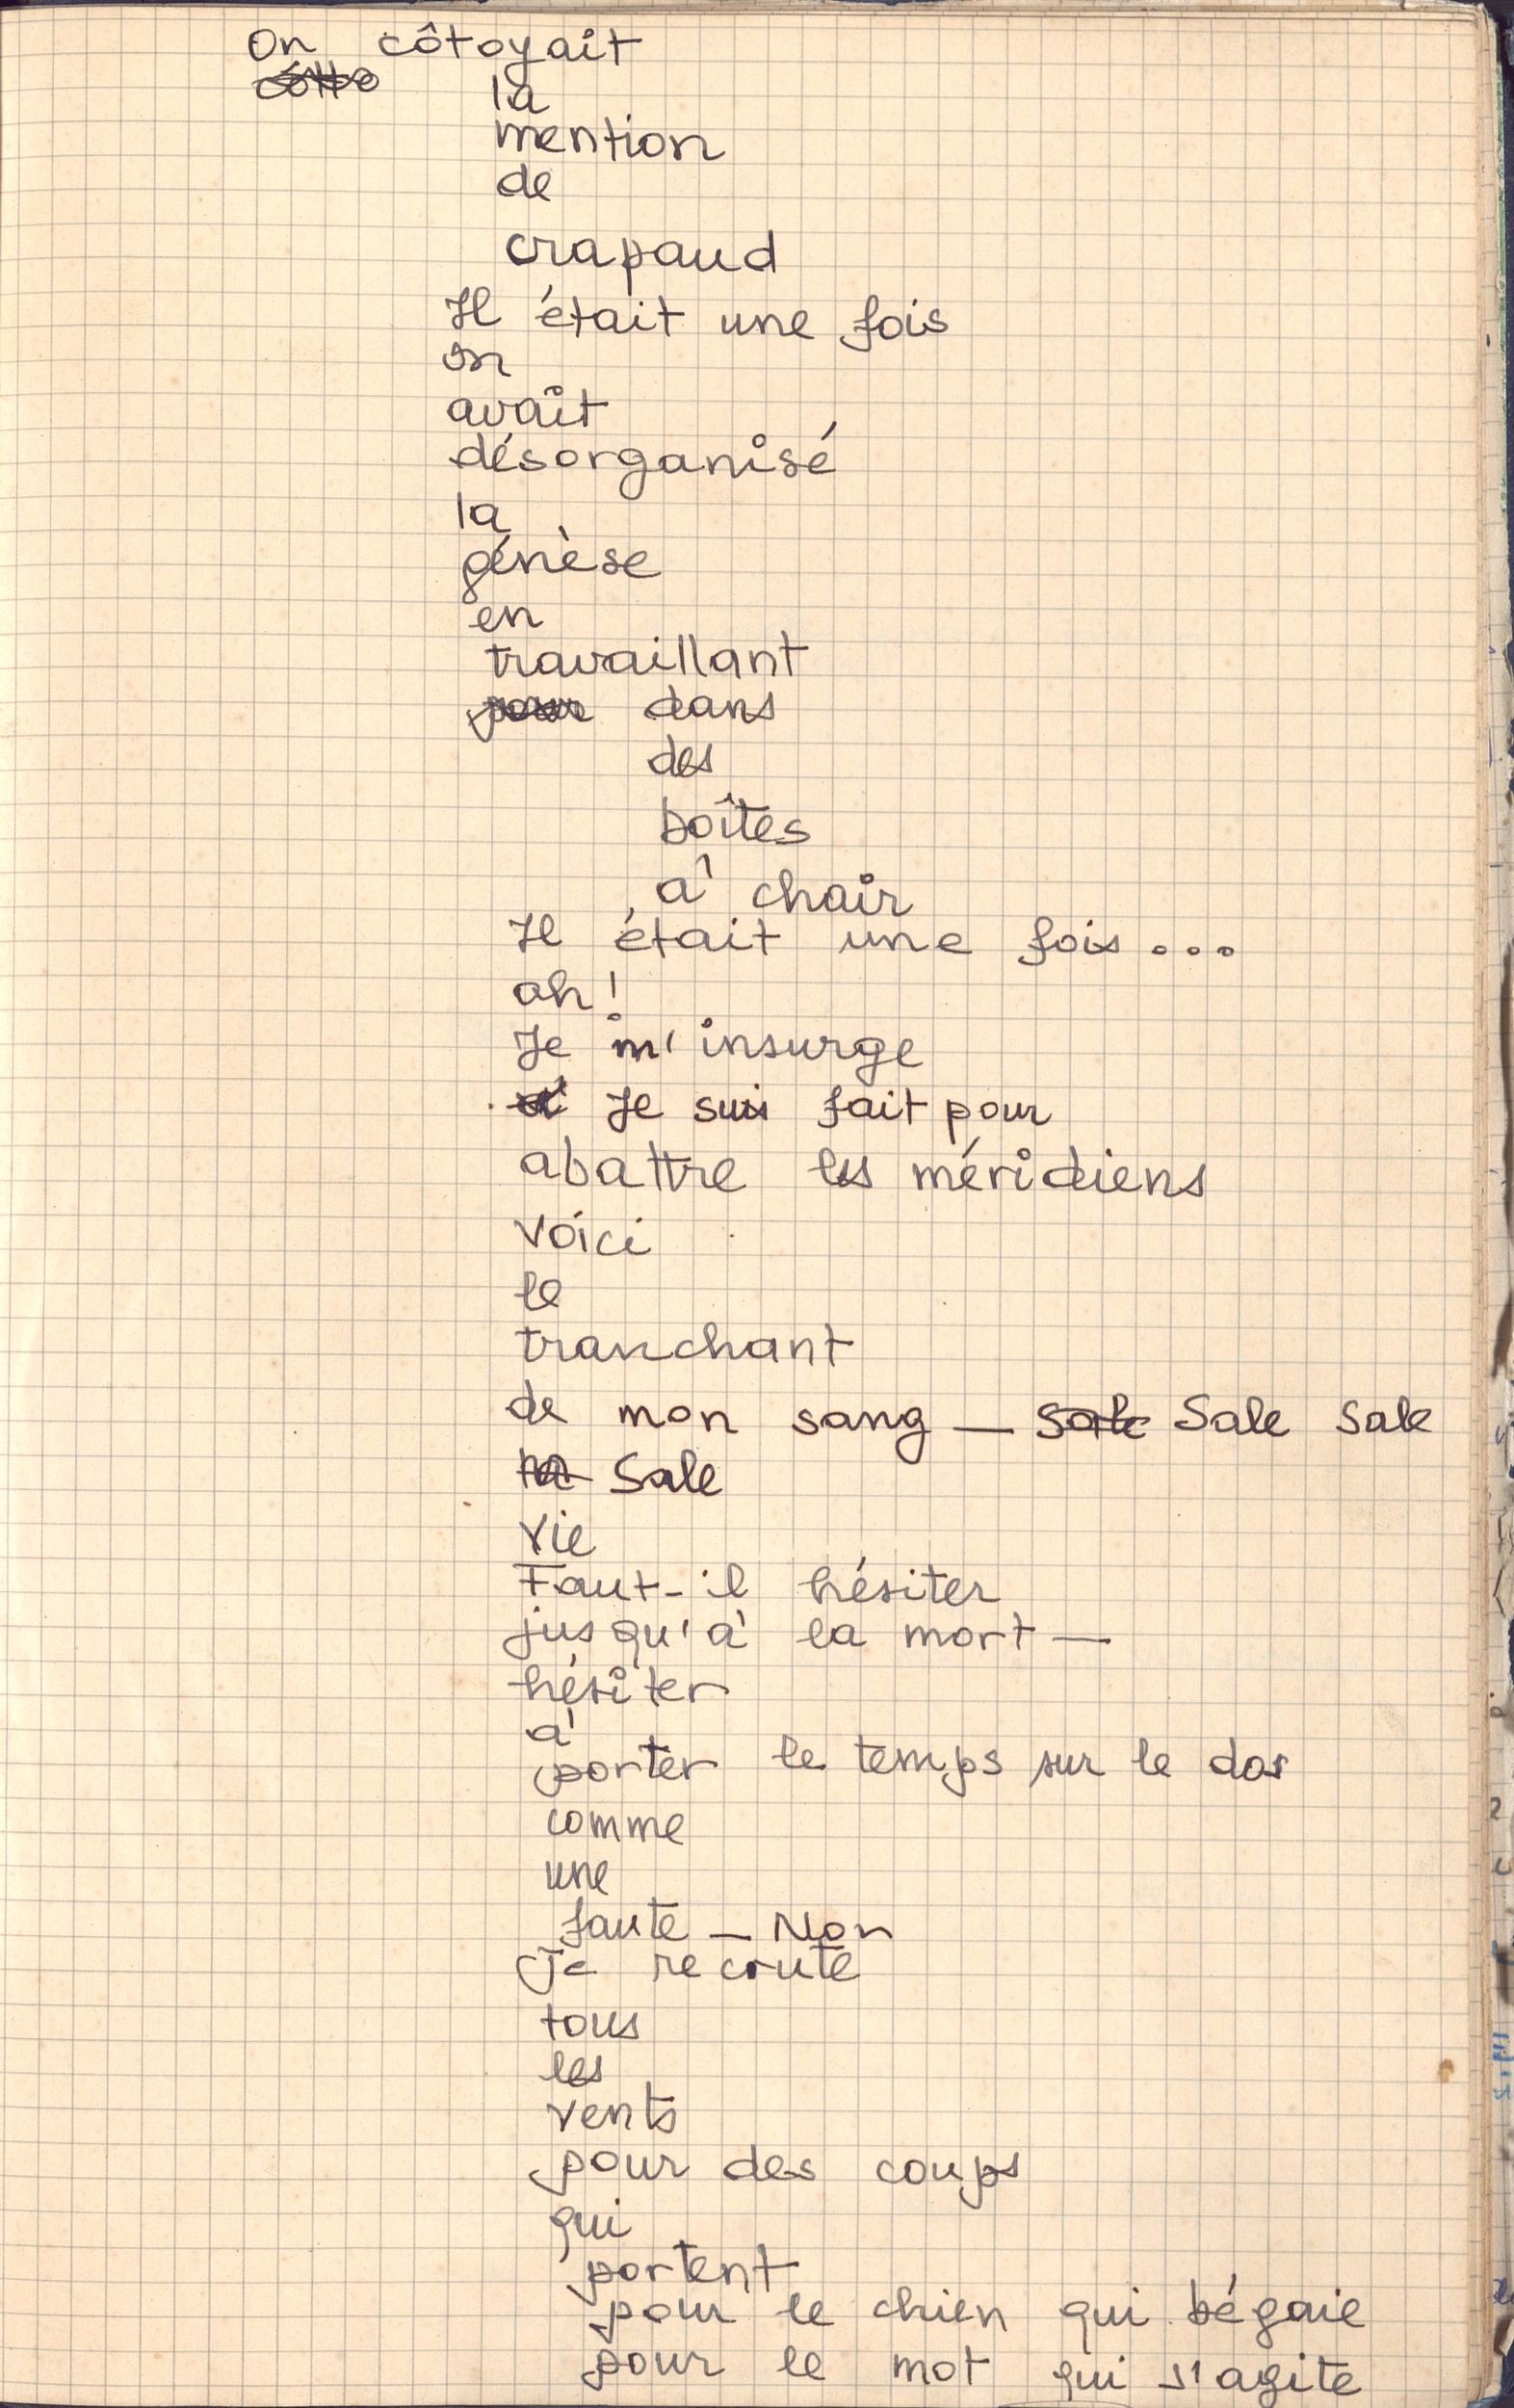 On côtoyait
la
mention
de
crapaud
Il était une fois
on
avait
désorganisé
la
génèse
en
travaillant
pour dans
des
boîtes
à chair
Il était une fois...
ah!
Je m'insurge
Je suis fait pour
abattre les méridiens
Voici
le
tranchant
de mon sang — Sale Sale Sale
ta Sale
vie
Faut-il hésiter
jusqu'à la mort —
hésiter
à
porter le temps sur le dos
comme
une
faute — Non
Je recrute
tous
les
vents
pour des coups
qui
portent
pour le chien qui bégaie
pour le mot qui s'agite